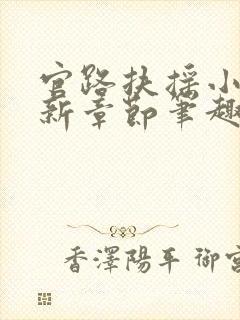 官路扶摇小
新章节笔趣
香澤陽平 御宮